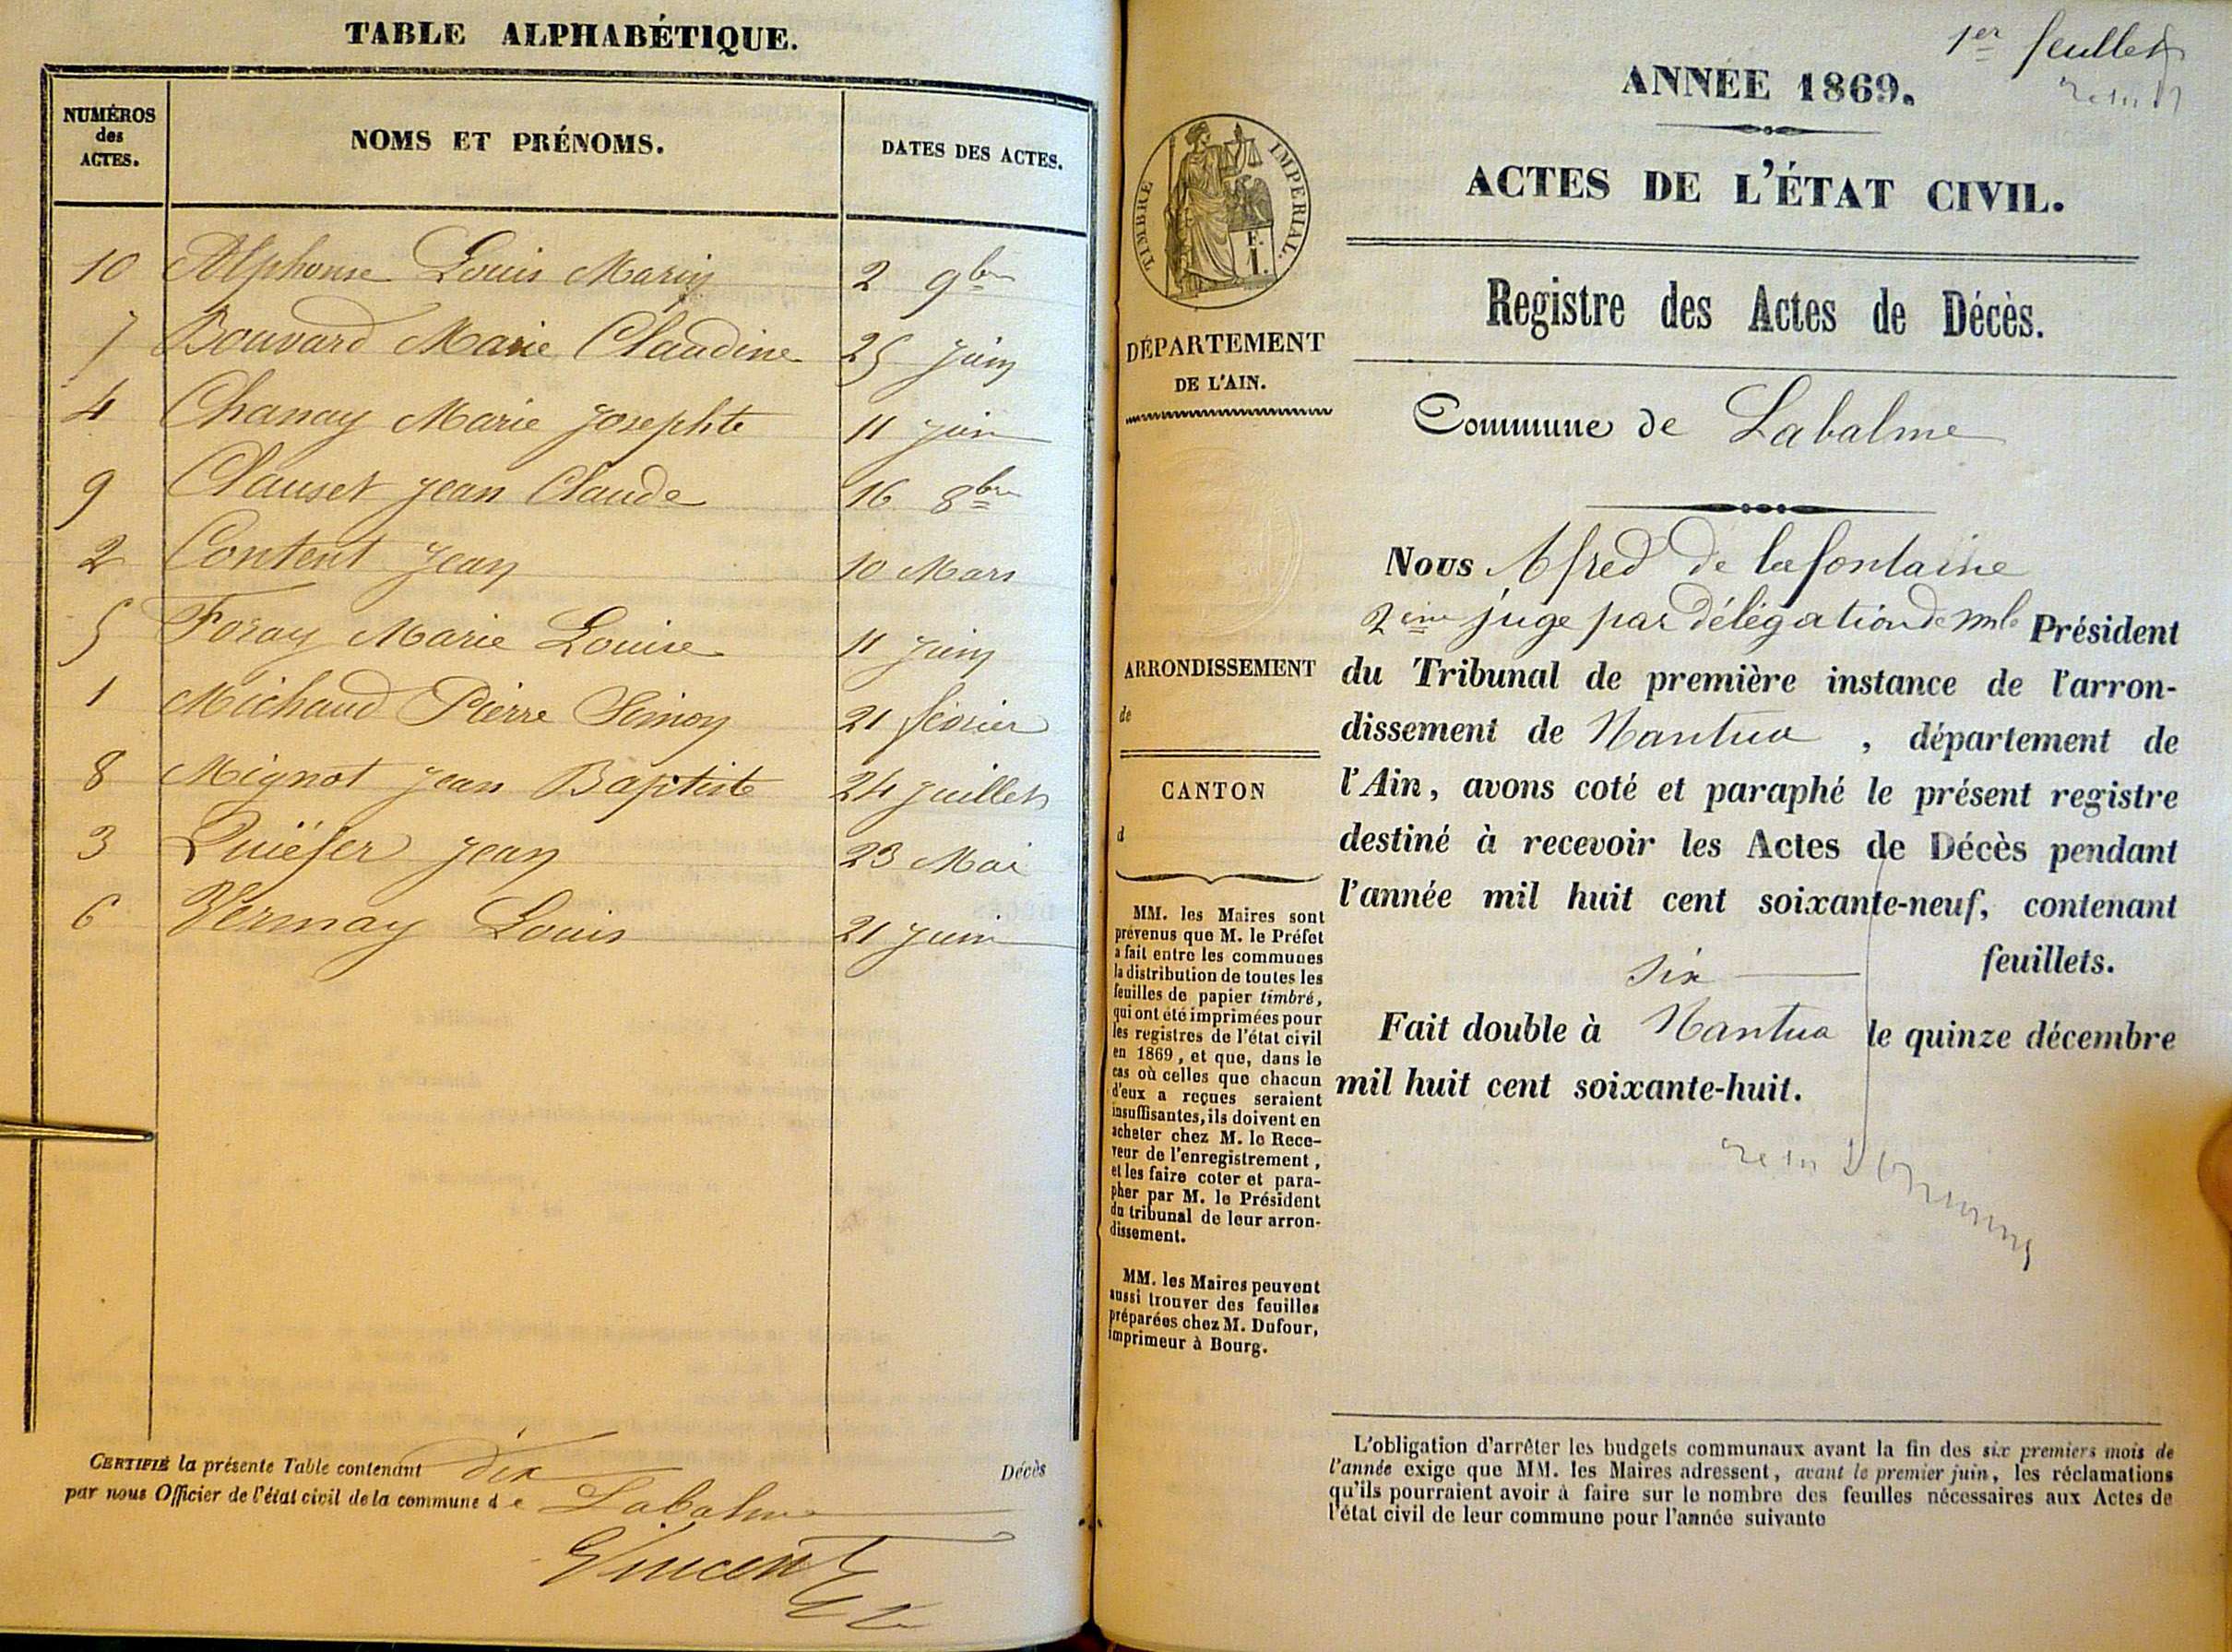 TABLE ALPHABÉTIQUE.
NUMÉROS des ACTES. NOMS ET PRÉNOMS. DATES DES ACTES.
10 Alphonse Louis Marin 2 9bre
7 Bouvard Marie Claudine 25 juin
4 Chanay Marie Josephte 11 juin
9 Clauset Jean Claude 16 8bre
2 Content Jean 10 Mars
5 Foray Marie Louise 11 juin
1 Michaud Pierre Simon 21 février
8 Mignot Jean Baptiste 24 juillet
3 Quiëfer Jean 23 Mai
6 Vernay Louis 21 juin
CERTIFIÉ la présente Table contenant dix Décès
par nous Officier de l'état civil de la commune de Labalme
Vincent
1er feuillet
ANNÉE 1869.
ACTES DE L'ÉTAT CIVIL.
Registre des Actes de Décès.
Commune de Labalme
TIMBRE IMPÉRIAL.
E. I.
DÉPARTEMENT
DE L'AIN.
ARRONDISSEMENT
de
CANTON
d
MM. les Maires sont
prévenus que M. le Préfet
a fait entre les communes
la distribution de toutes les
feuilles de papier timbré,
qui ont été imprimées pour
les registres de l'état civil
en 1869, et que, dans le
cas où celles que chacun
d'eux a reçues seraient
insuffisantes, ils doivent en
acheter chez M. le Rece-
veur de l'enregistrement,
et les faire coter et para-
pher par M. le Président
du tribunal de leur arron-
dissement.
MM. les Maires peuvent
aussi trouver des feuilles
préparées chez M. Dufour,
imprimeur à Bourg.
Nous Alfred de lafontaine
2ème juge par délégation de Mr le Président
du Tribunal de première instance de l'arron-
dissement de Nantua, département de
l'Ain, avons coté et paraphé le présent registre
destiné à recevoir les Actes de Décès pendant
l'année mil huit cent soixante-neuf, contenant
six feuillets.
Fait double à Nantua le quinze décembre
mil huit cent soixante-huit.
L'obligation d'arrêter les budgets communaux avant la fin des six premiers mois de
l'année exige que MM. les Maires adressent, avant le premier juin, les réclamations
qu'ils pourraient avoir à faire sur le nombre des feuilles nécessaires aux Actes de
l'état civil de leur commune pour l'année suivante